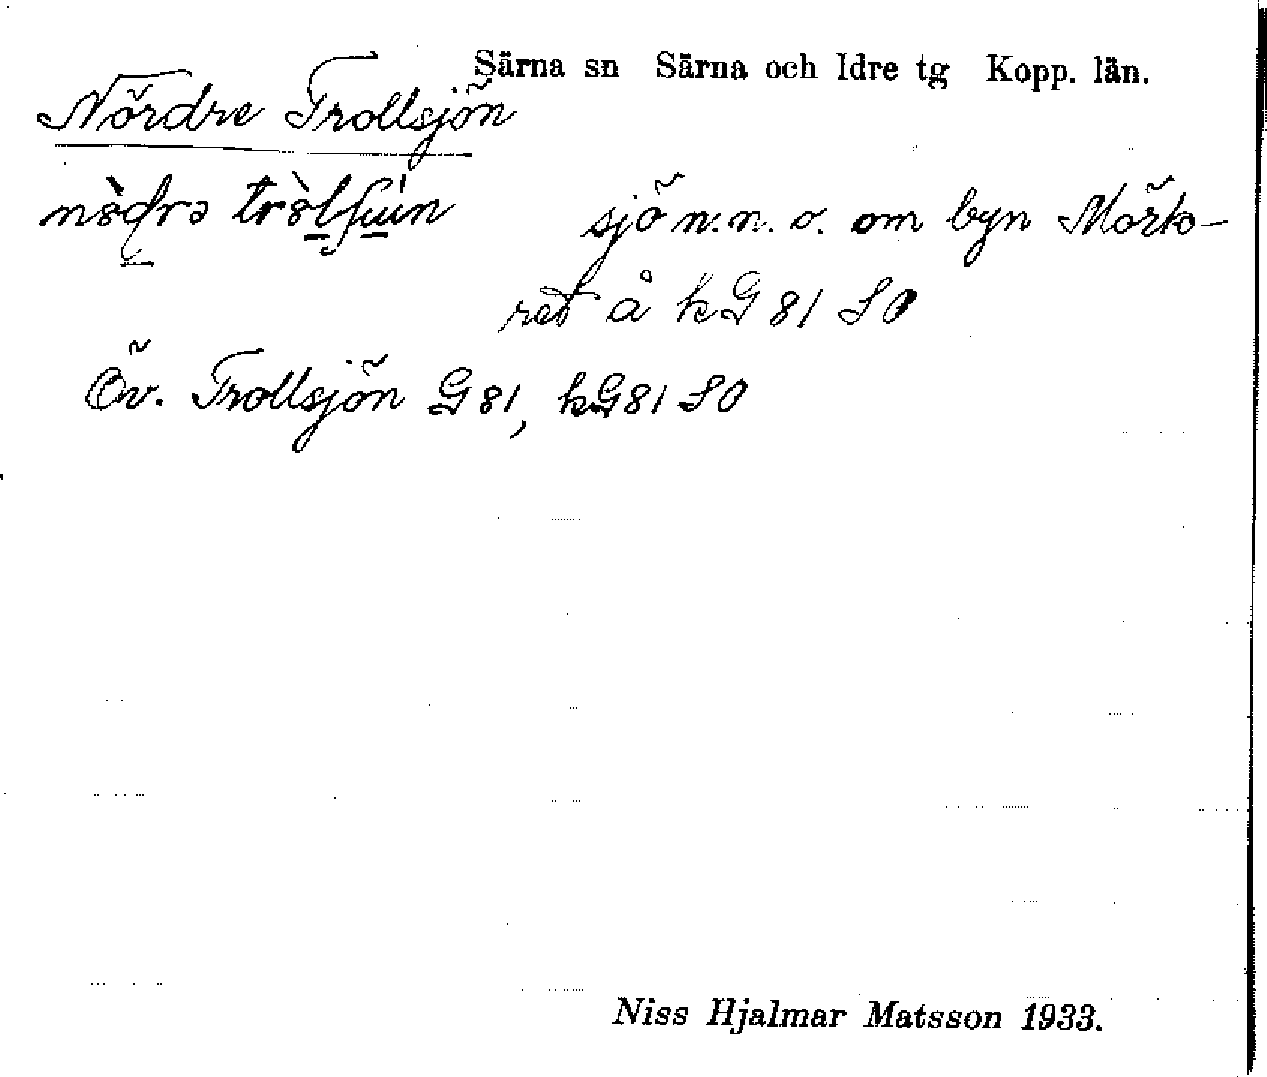 Särna sn Särna och Idre tg Kopp. län.
Nördre Trollsjön
sjö n.n.o. om byn Mörk-
ret å kG 81 SO
Öv. Trollsjön G 81, kG 81 SO
Niss Hjalmar Matsson 1933.